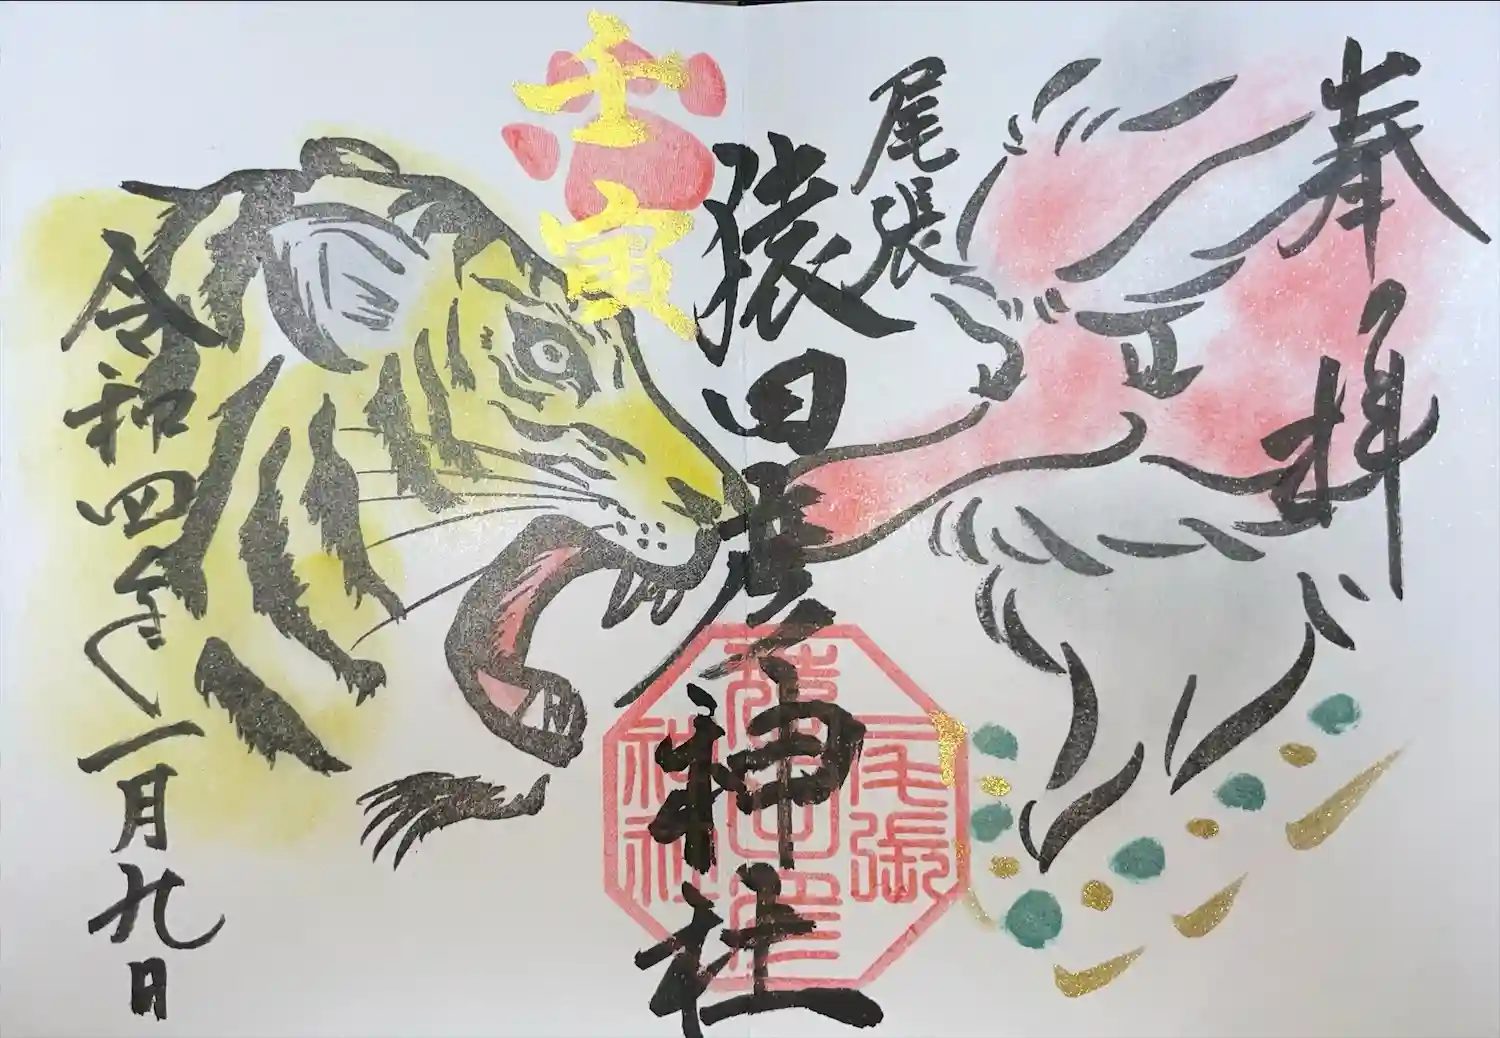 奉拝
尾張
猿田彦神社
尾張
猿田彦
神社
壬寅
令和四年一月九日